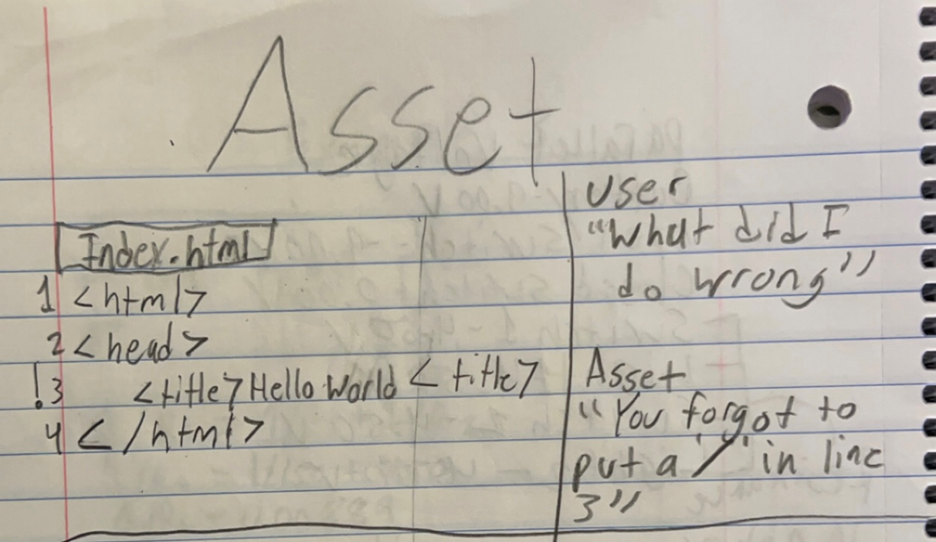 Asset
Index.html
1 <html>
2 <head>
!3 <title>Hello World <title>
4 </html>
User
"What did I
do wrong"
Asset
"You forgot to
put a '/' in line
3"